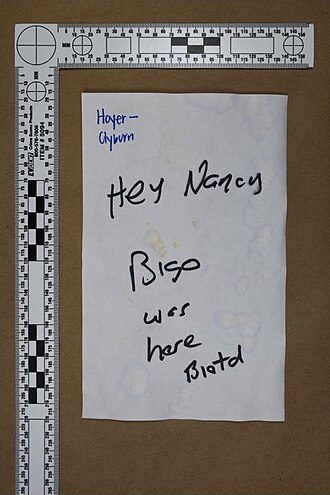 Hoyer-
Clyburn
Hey Nancy
Bigo
was
here
Biatd